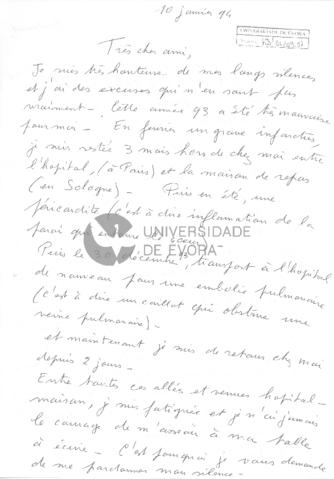 10 janvier 94
UNIVERSIDADE DE ÉVORA
Très cher ami,
Je suis très honteuse de mes longs silences
et j'ai des excuses qui n'en sont pas
vraiment - Cette année 93 a été très mauvaise
pour moi - En février un grave infarctus,
je suis restée 3 mois hors de chez moi entre
l'hopital, (à Paris) et la maison de repos
(en Sologne) - Puis en été, une
péricardite (c'est à dire inflamation de la
paroi qui entoure le coeur)
UNIVERSIDADE
DE ÉVORA
Puis le 30 décembre 93, transport à l'hopital
de nouveau pour une embolie pulmonaire
(c'est à dire un caillot qui obstrue une
veine pulmonaire) -
et maintenant je suis de retour chez moi
depuis 2 jours -
Entre toutes ces allés et venues hopital-
maison, je suis fatiguée et je n'ai jamais
le courage de m'asseoir à ma table
à écrire - C'est pourquoi je vous demande
de me pardonner mon silence -